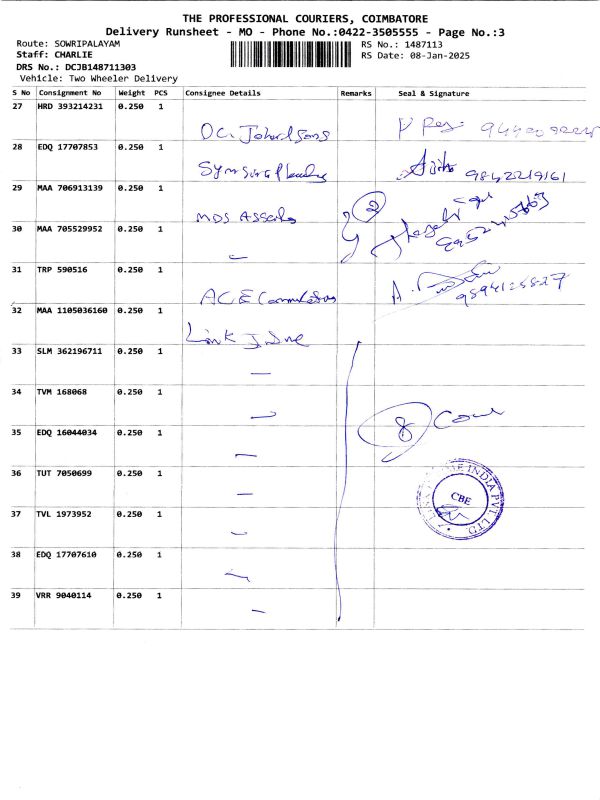 THE PROFESSIONAL COURIERS, COIMBATORE
Delivery Runsheet - MO - Phone No.:0422-3505555 - Page No.:3
Route: SOWRIPALAYAM
RS No.: 1487113
Staff: CHARLIE
RS Date: 08-Jan-2025
DRS No.: DCJB148711303
Vehicle: Two Wheeler Delivery
S No Consignment No Weight PCS Consignee Details Remarks Seal & Signature
27 HRD 393214231 0.250 1
28 EDQ 17707853 0.250 1
9842219161
29 MAA 706913139 0.250 1
MDS Assets 2
30 MAA 705529952 0.250 1
31 TRP 590516 0.250 1
ACE 9894125827
32 MAA 1105036160 0.250 1
Link
33 SLM 362196711 0.250 1
34 TVM 168068 0.250 1
8
35 EDQ 16044034 0.250 1
36 TUT 7050699 0.250 1
INDIA PVT LTD.
CBE
37 TVL 1973952 0.250 1
38 EDQ 17707610 0.250 1
39 VRR 9040114 0.250 1